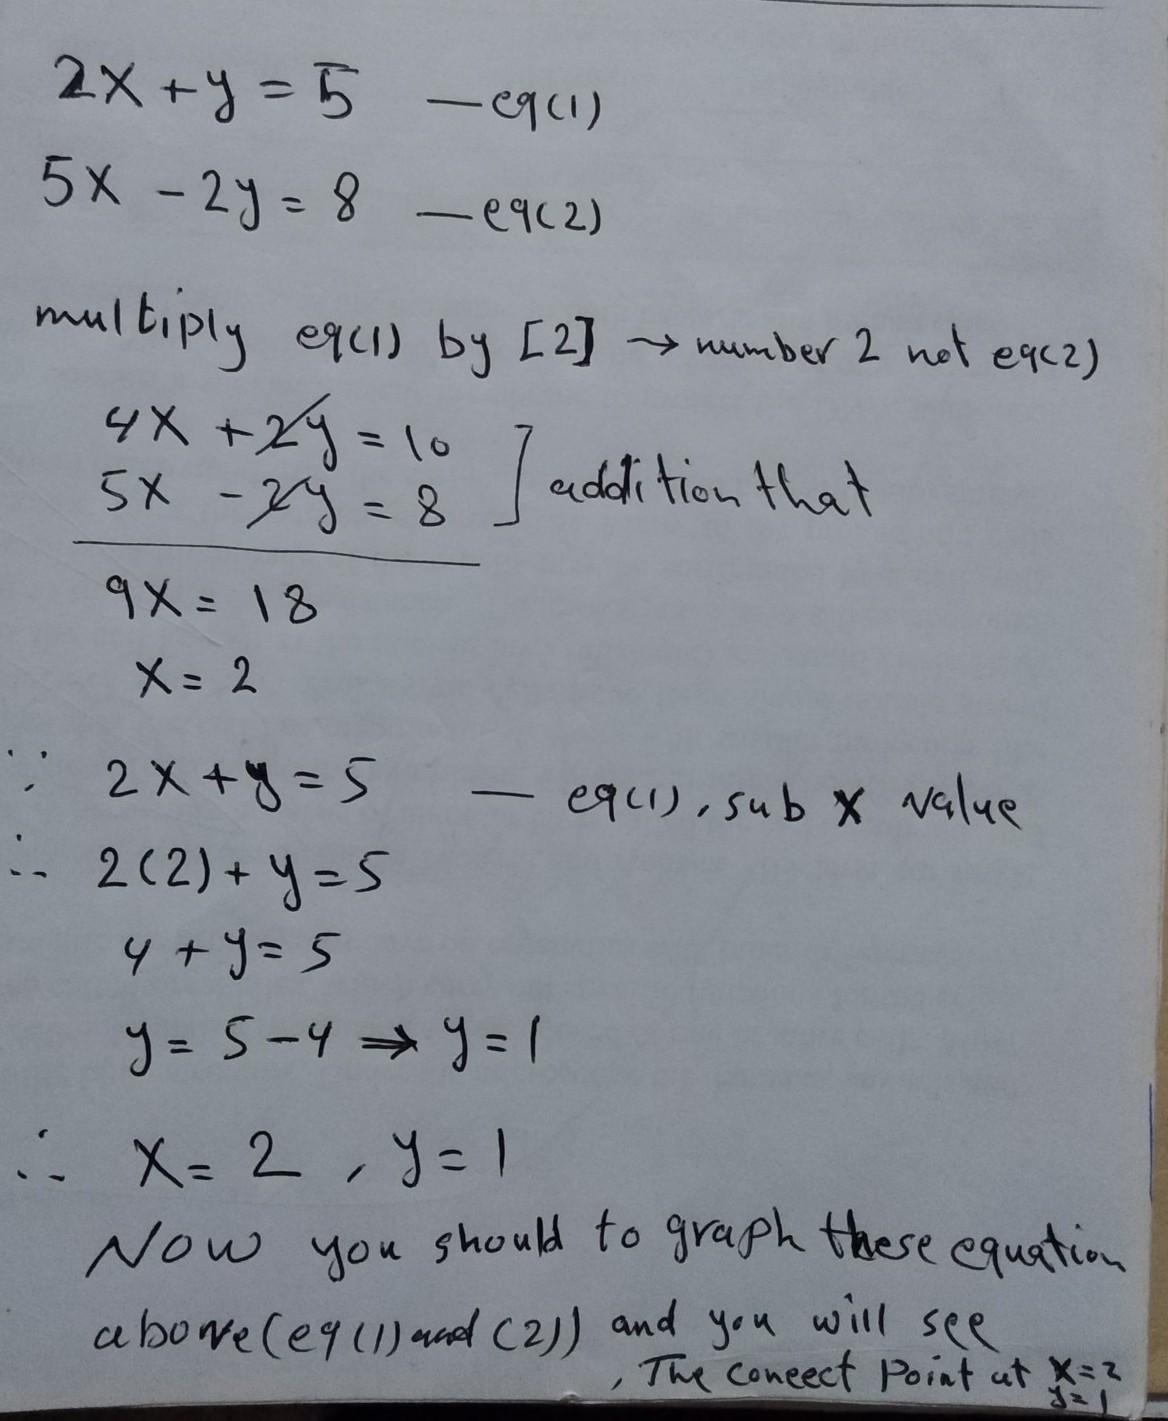 2x + y = 5 — eq(1)
5x - 2y = 8 — eq(2)
multiply eq(1) by [2] → number 2 not eq(2)
4x + 2y = 10
5x - 2y = 8 ] addition that
9x = 18
x = 2
∵ 2x + y = 5 — eq(1), sub x value
∴ 2(2) + y = 5
4 + y = 5
y = 5 - 4 ⇒ y = 1
∴ x = 2 , y = 1
Now you should to graph these equation
above (eq(1) and (2)) and you will see
, The coneect Point at x=2
y=1